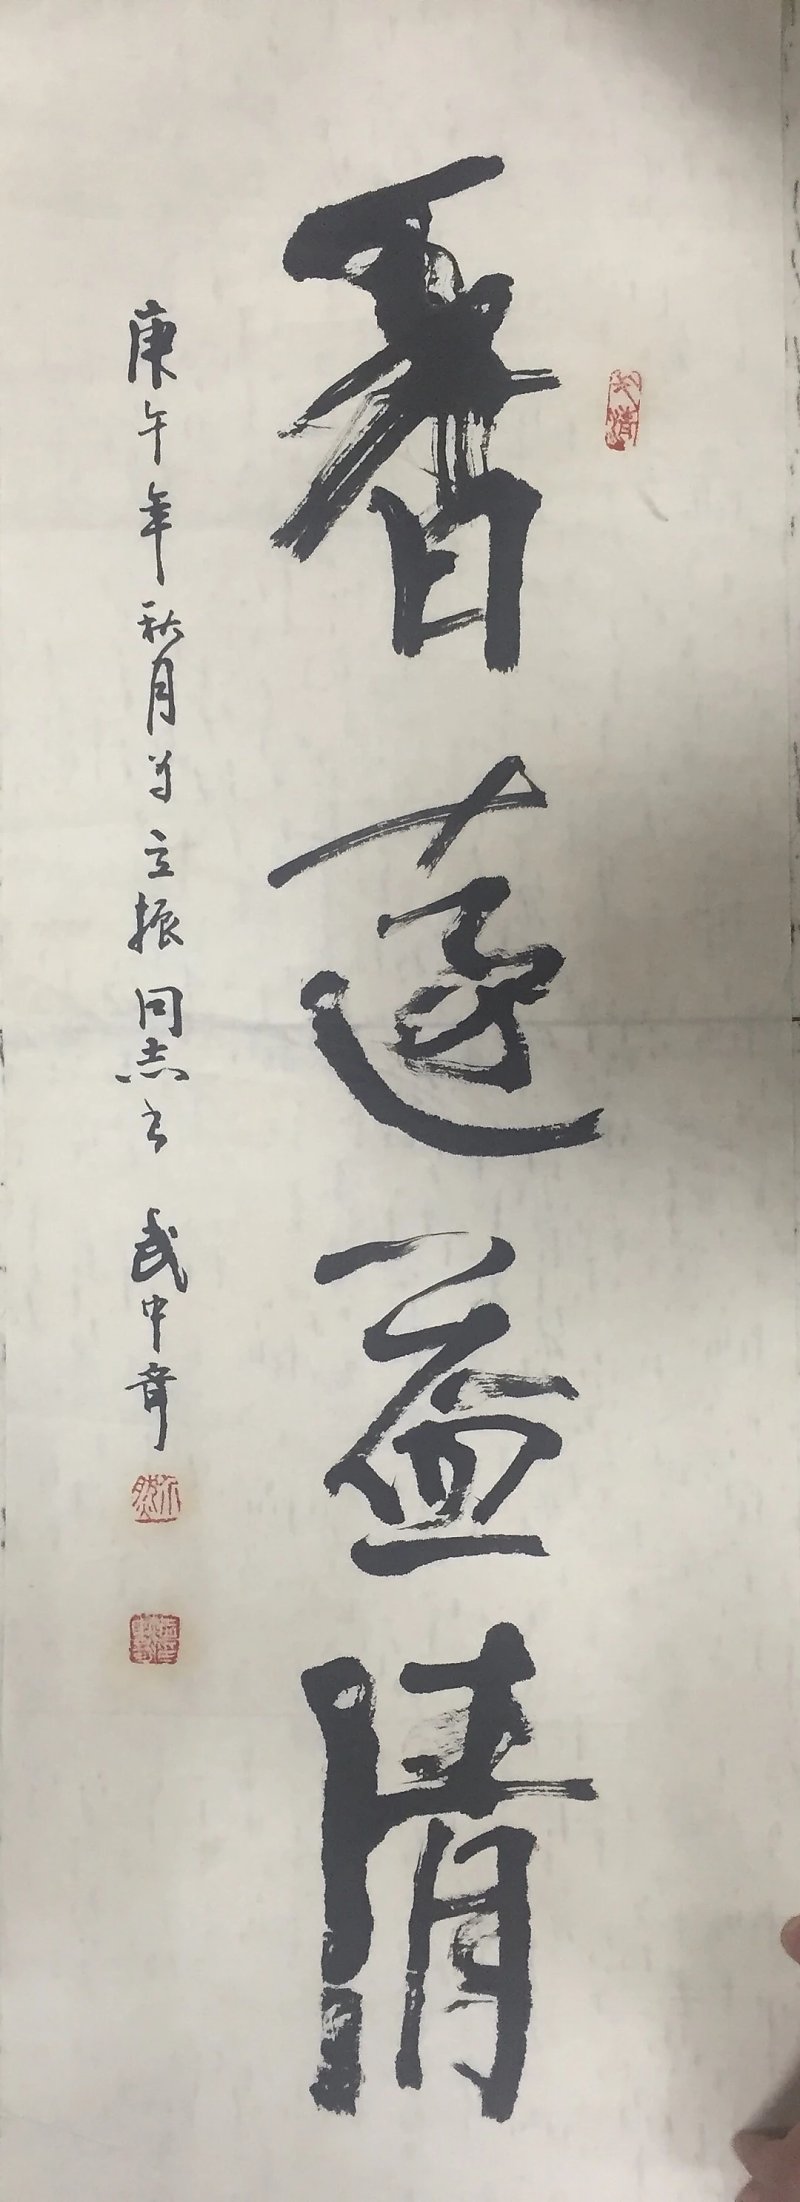 香远益清
庚午年秋月为立振同志书 武中奇